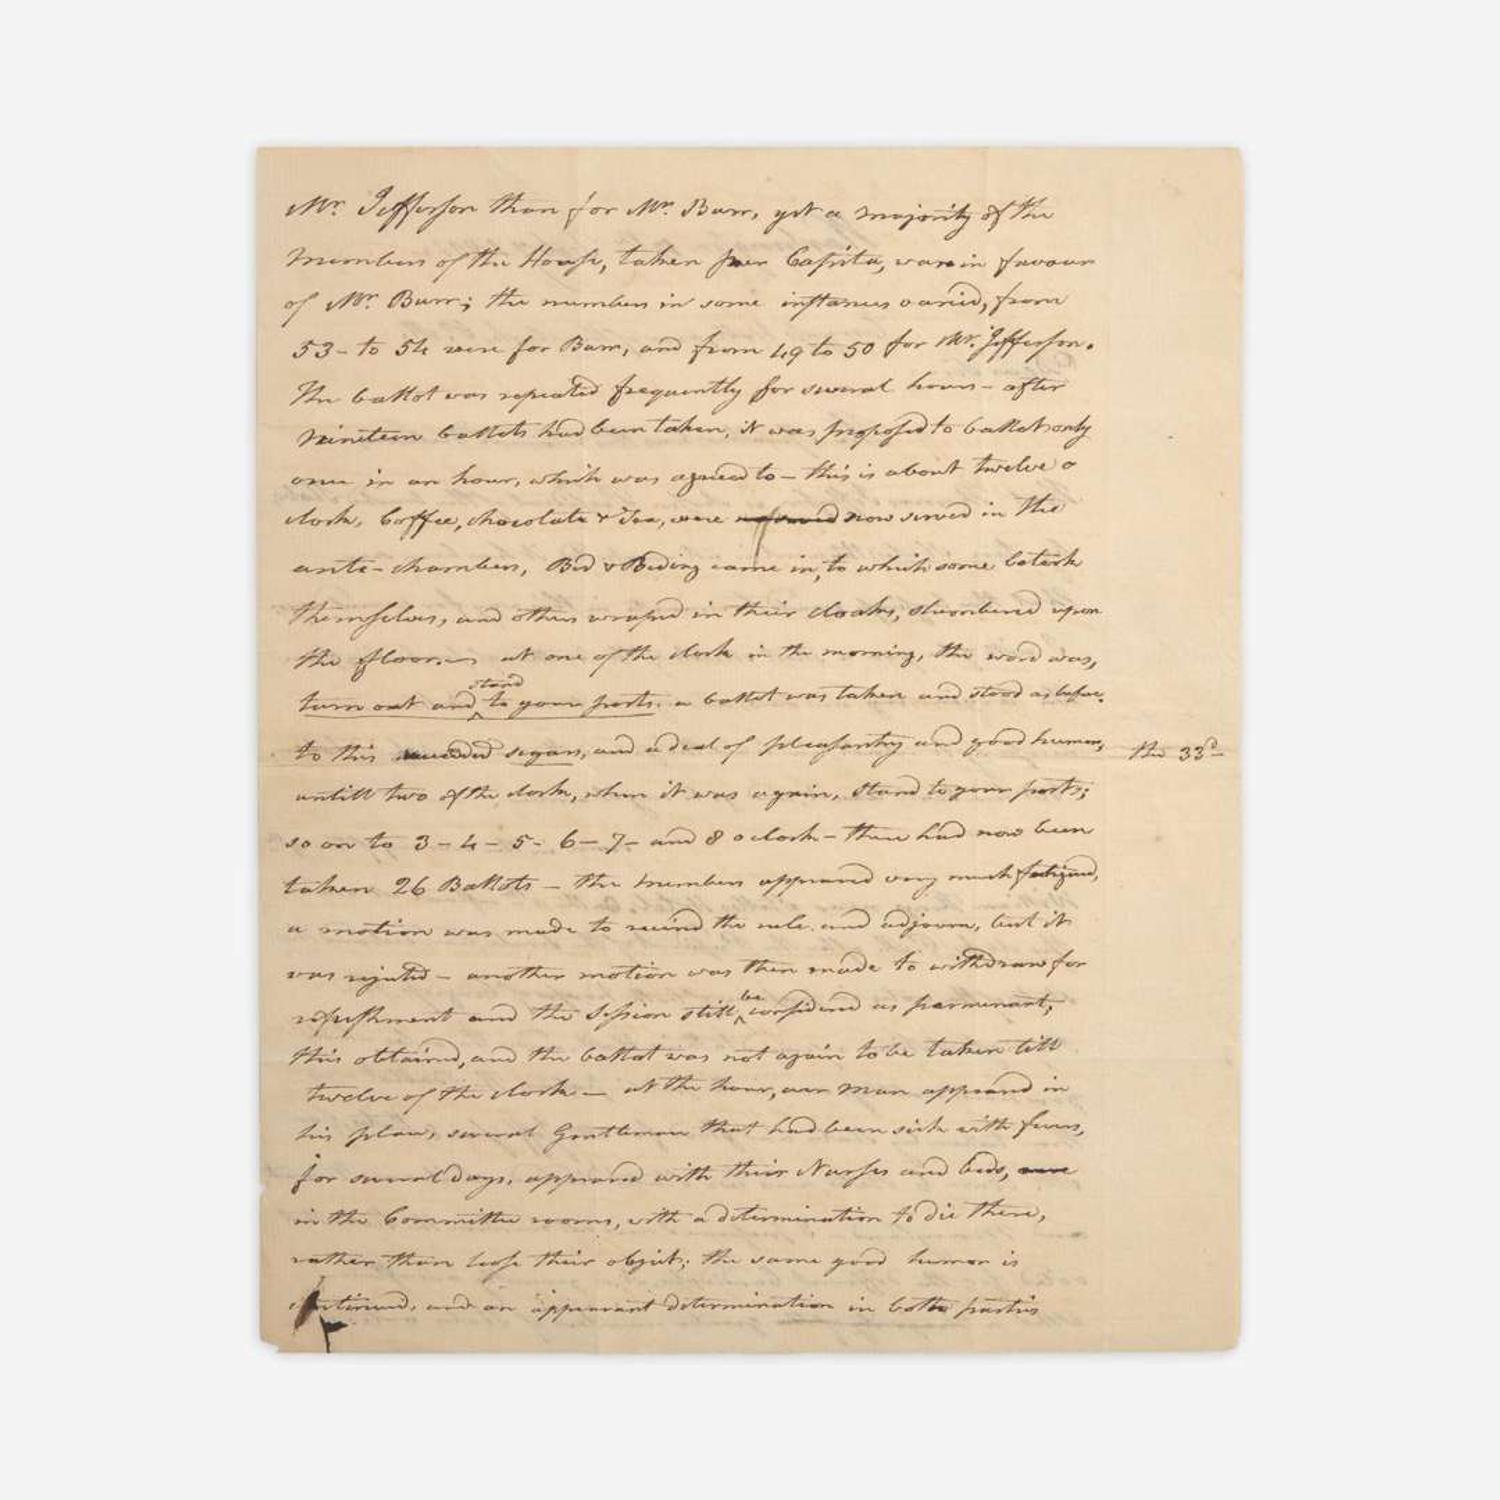 Mr. Jefferson than for Mr. Burr, yet a majority of the
Members of the House, taken per Capita, was in favour
of Mr. Burr; the numbers in some instances varied, from
53- to 54 were for Burr, and from 49 to 50 for Mr. Jefferson.
The ballot was repeated frequently for several hours - after
Nineteen ballots had been taken, it was proposed to ballot only
once in an hour, which was agreed to - this is about twelve o
clock, Coffee, chocolate & Tea, were now served in the
ante-chambers, Bed & Beding came in, to which some betook
themselves, and others wraped in their cloaks, slumbered upon
the floor. — at one of the clock in the morning, the word was,
turn out and stand to your posts. a ballot was taken and stood as before.
to this succeeded segars, and a deal of pleasantry and good humor, the 33d
untill two of the clock, when it was again, Stand to your posts;
so on to 3 - 4 - 5 - 6 - 7 - and 8 o clock - there had now been
taken 26 Ballots - the Members appeared very much fatigued,
a motion was made to recind the rule and adjourn, but it
was rejected - another motion was then made to withdraw for
refreshment and the Session still be considered as permenant,
this obtained, and the ballot was not again to be taken till
twelve of the clock - at the hour, every man appeared in
his place, several Gentlemen that had been sick with fevers,
for several days, appeared with their Nurses and beds,
in the Committee rooms, with a determination to die there,
rather than lose their object; the same good humor is
continued, and an appearant determination in both parties